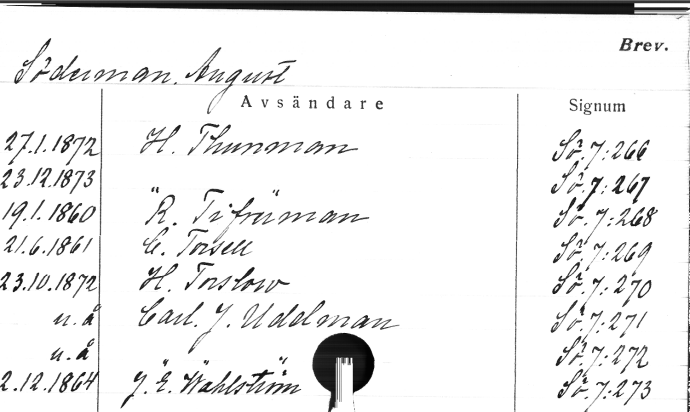 Brev.
Söderman, August
Avsändare Signum
27.1.1872 H. Thunman Sö. 7:266
23.12.1873 " " Sö. 7:267
19.1.1860 R. Sö. 7:268
21.6.1861 C. Torsell Sö. 7:269
23.10.1872 H. Torslow Sö. 7:270
u.å Carl J. Uddman Sö. 7:271
u.å " " Sö. 7:272
2.12.1864 J. E. Wahlström Sö. 7:273